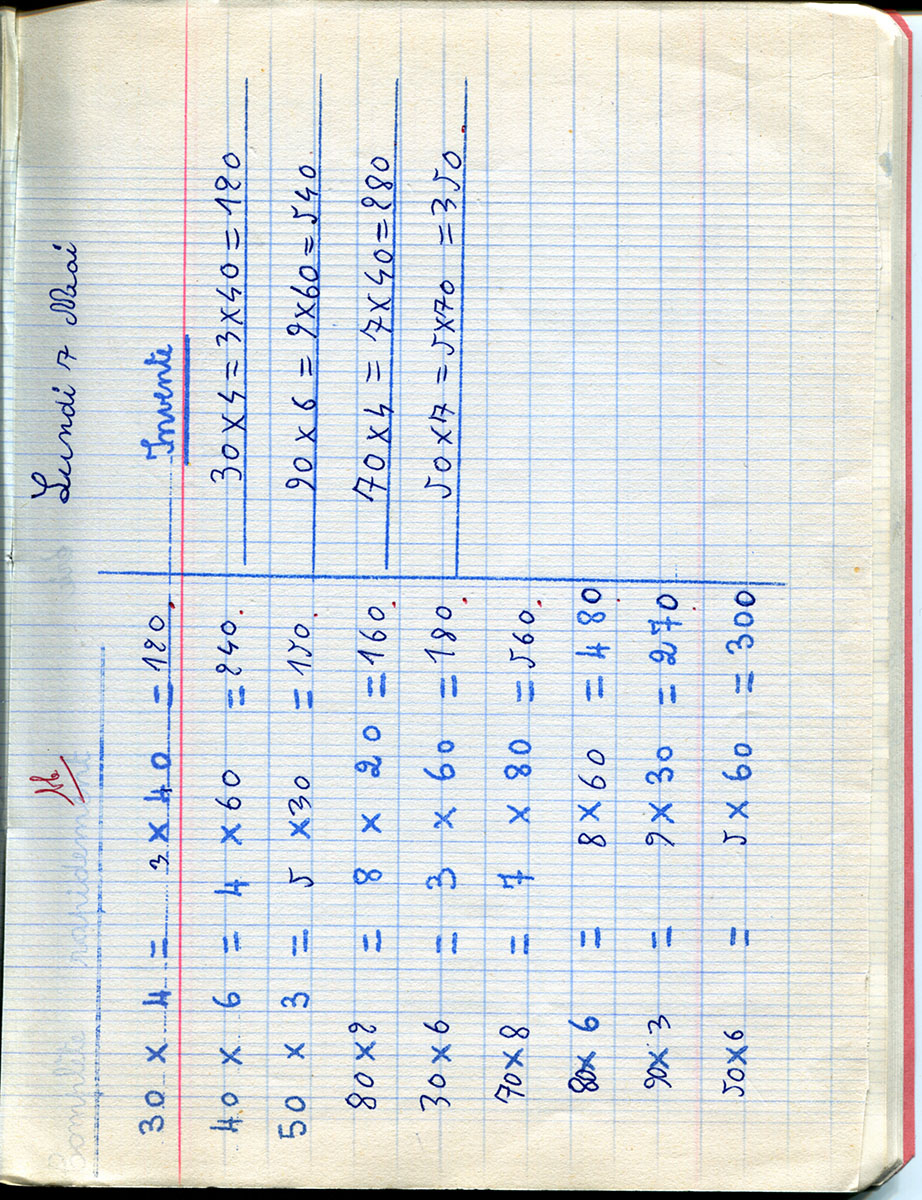 Lundi 7 Mai
Complète rapidement
30 x 4 = 3 x 40 = 120.
40 x 6 = 4 x 60 = 240.
50 x 3 = 5 x 30 = 150.
80 x 2 = 8 x 20 = 160.
30 x 6 = 3 x 60 = 180.
70 x 8 = 7 x 80 = 560.
80 x 6 = 8 x 60 = 480.
90 x 3 = 9 x 30 = 270.
50 x 6 = 5 x 60 = 300
Invente
30 x 4 = 3 x 40 = 120
90 x 6 = 9 x 60 = 540
70 x 4 = 7 x 40 = 280
50 x 7 = 5 x 70 = 350.